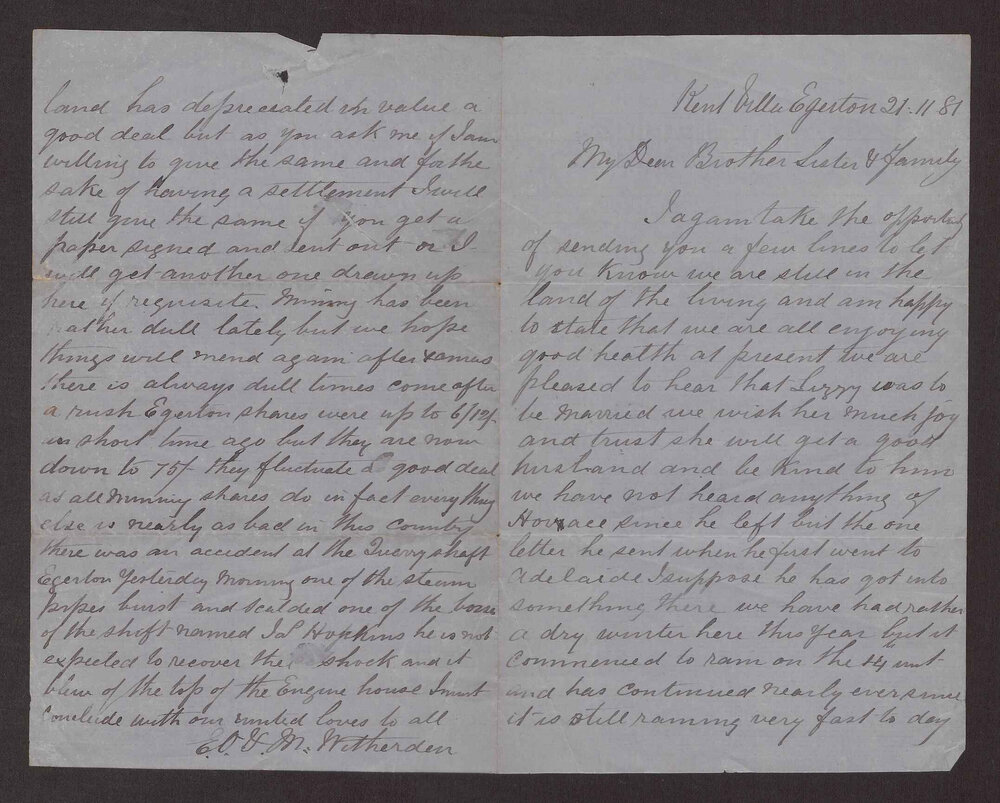 Kent Villa Egerton 21.11 81
My Dear Brother Sister & Family
I again take the opportunity
of sending you a few lines to let
you know we are still in the
land of the living and am happy
to state that we are all enjoying
good health at present we are
pleased to hear that Lizzy was to
be married we wish her much joy
and trust she will get a good
husband and be kind to him
we have not heard anything of
Horace since he left but the one
letter he sent when he first went to
Adelaide I suppose he has got into
something there we have had rather
a dry winter here this Year but it
commenced to rain on the
and has continued nearly ever since
it is still raining very fast to day
land has depreciated in value a
good deal but as you ask me if I am
willing to give the same and for the
sake of having a settlement I will
still give the same if you get a
paper signed and sent out or I
will get another one drawn up
here if requisite. Mining has been
rather dull lately but we hope
things will mend again after xmas
there is always dull times come after
a rush Egerton shares were up to 6/12/-
in short time ago but they are now
down to 75/- they fluctuate a good deal
as all mining shares do in fact every thing
else is nearly as bad in this country
there was an accident at the shaft
Egerton Yesterday Morning one of the steam
pipes burst and scalded one of the bosses
of the shift named Hopkins he is not
expected to recover the shock and it
blew of the top of the Engine house I must
conclude with our united loves to all
E. O. & M. Witherden